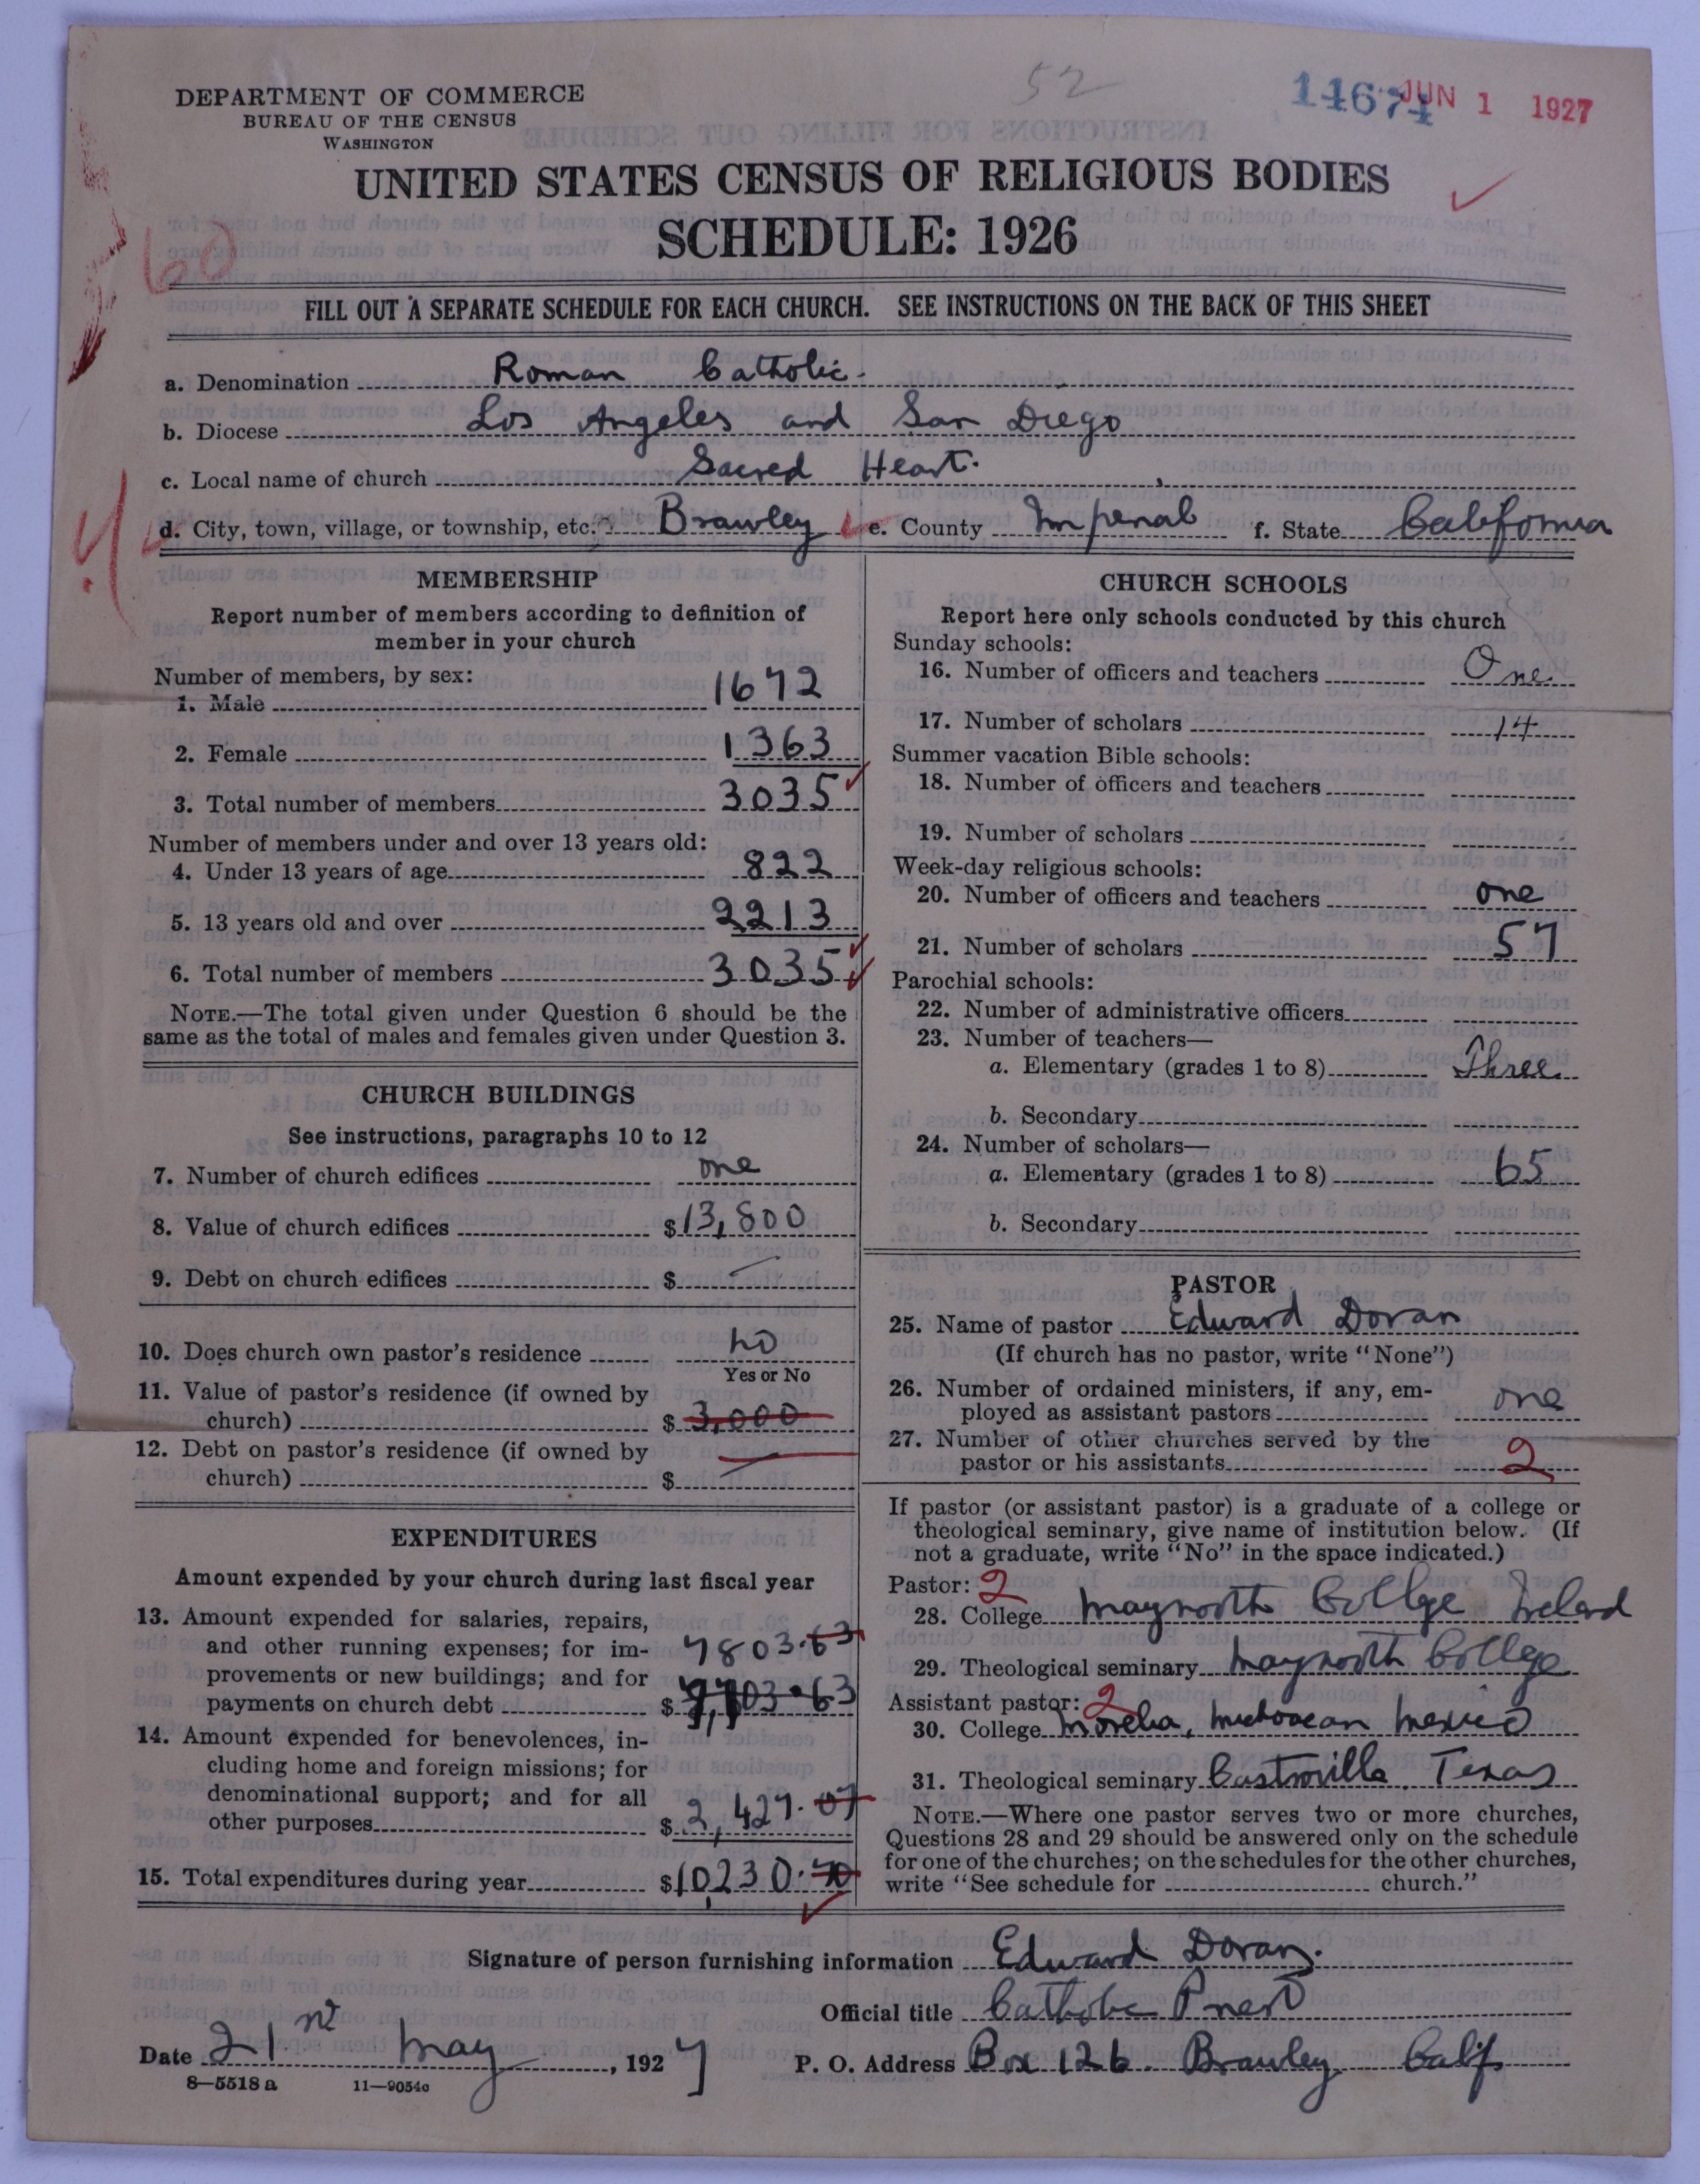 52
14674 JUN 1 1927
DEPARTMENT OF COMMERCE
BUREAU OF THE CENSUS
WASHINGTON
UNITED STATES CENSUS OF RELIGIOUS BODIES
SCHEDULE: 1926
60
FILL OUT A SEPARATE SCHEDULE FOR EACH CHURCH. SEE INSTRUCTIONS ON THE BACK OF THIS SHEET
a. Denomination Roman Catholic.
b. Diocese Los Angeles and San Diego
c. Local name of church Sacred Heart.
d. City, town, village, or township, etc. Brawley e. County Imperial f. State California
MEMBERSHIP
Report number of members according to definition of
member in your church
Number of members, by sex:
1. Male 1672
2. Female 1363
3. Total number of members 3035
Number of members under and over 13 years old:
4. Under 13 years of age 822
5. 13 years old and over 2213
6. Total number of members 3035
NOTE.—The total given under Question 6 should be the
same as the total of males and females given under Question 3.
CHURCH BUILDINGS
See instructions, paragraphs 10 to 12
7. Number of church edifices one
8. Value of church edifices $13,800
9. Debt on church edifices $ —
10. Does church own pastor's residence no
Yes or No
11. Value of pastor's residence (if owned by
church) $ 3,000
12. Debt on pastor's residence (if owned by
church) $ —
EXPENDITURES
Amount expended by your church during last fiscal year
13. Amount expended for salaries, repairs,
and other running expenses; for im- 7803.63
provements or new buildings; and for
payments on church debt $ 03.63
14. Amount expended for benevolences, in-
cluding home and foreign missions; for
denominational support; and for all
other purposes $ 2,427.07
15. Total expenditures during year $10,230.70
CHURCH SCHOOLS
Report here only schools conducted by this church
Sunday schools:
16. Number of officers and teachers One
17. Number of scholars 14
Summer vacation Bible schools:
18. Number of officers and teachers
19. Number of scholars
Week-day religious schools:
20. Number of officers and teachers one
21. Number of scholars 57
Parochial schools:
22. Number of administrative officers
23. Number of teachers—
a. Elementary (grades 1 to 8) Three
b. Secondary
24. Number of scholars—
a. Elementary (grades 1 to 8) 65
b. Secondary
PASTOR
25. Name of pastor Edward Doran
(If church has no pastor, write "None")
26. Number of ordained ministers, if any, em-
ployed as assistant pastors one
27. Number of other churches served by the
pastor or his assistants 2
If pastor (or assistant pastor) is a graduate of a college or
theological seminary, give name of institution below. (If
not a graduate, write "No" in the space indicated.)
Pastor: 2
28. College Maynooth College Ireland
29. Theological seminary Maynooth College
Assistant pastor: 2
30. College Morelia, Michoacan Mexico
31. Theological seminary Castroville, Texas
NOTE.—Where one pastor serves two or more churches,
Questions 28 and 29 should be answered only on the schedule
for one of the churches; on the schedules for the other churches,
write "See schedule for church."
Signature of person furnishing information Edward Doran.
Official title Catholic Priest
Date 21st May, 1927 P. O. Address Box 126 Brawley Calif.
8—5518 a 11—9054c